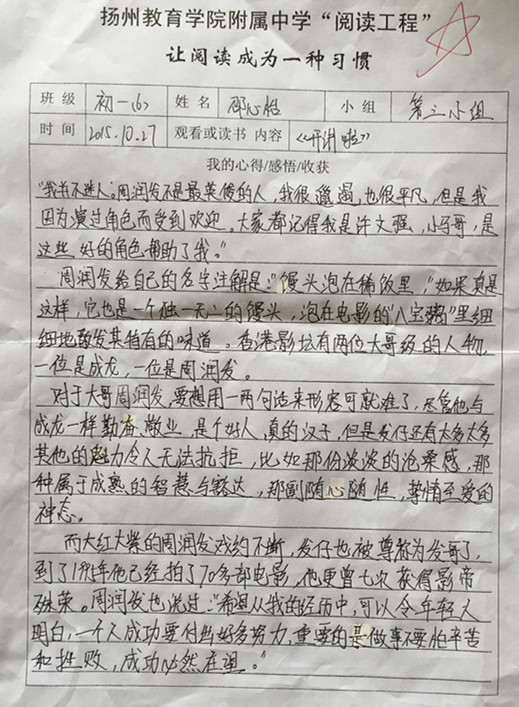 扬州教育学院附属中学“阅读工程”
让阅读成为一种习惯
班级 初一(6) 姓名 邵心恬 小组 第三小组
时间 2015.10.27 观看或读书内容 《开讲啦》
我的心得/感悟/收获
“我并不迷人。周润发不是最英俊的人,我很邋遢,也很平凡,但是我
因为演过角色而受到欢迎。大家都记得我是许文强,小马哥,是
这些好的角色帮助了我。”
周润发给自己的名字注解是:“馒头泡在稀饭里,”如果真是
这样,它也是一个独一无二的馒头,泡在电影的“八宝粥”里细
细地散发其特有的味道。香港影坛有两位大哥级的人物,
一位是成龙,一位是周润发。
对于大哥周润发,要想用一两句话来形容可就难了,尽管他与
成龙一样勤奋、敬业,是个好人,真的汉子,但是发仔还有太多太多
其他的魅力令人无法抗拒,比如那份淡淡的沧桑感,那
种属于成熟的智慧与豁达,那副随心随性,挚情至爱的
神态。
而大红大紫的周润发戏约不断,发仔也被尊称为发哥了,
到了1995年他已经拍了70多部电影,他更曾七次获得影帝
殊荣。周润发也说过:“希望从我的经历中,可以令年轻人
明白,一个人成功要付出好多努力,重要的是做事不要怕辛苦
和挫败,成功必然在望。”